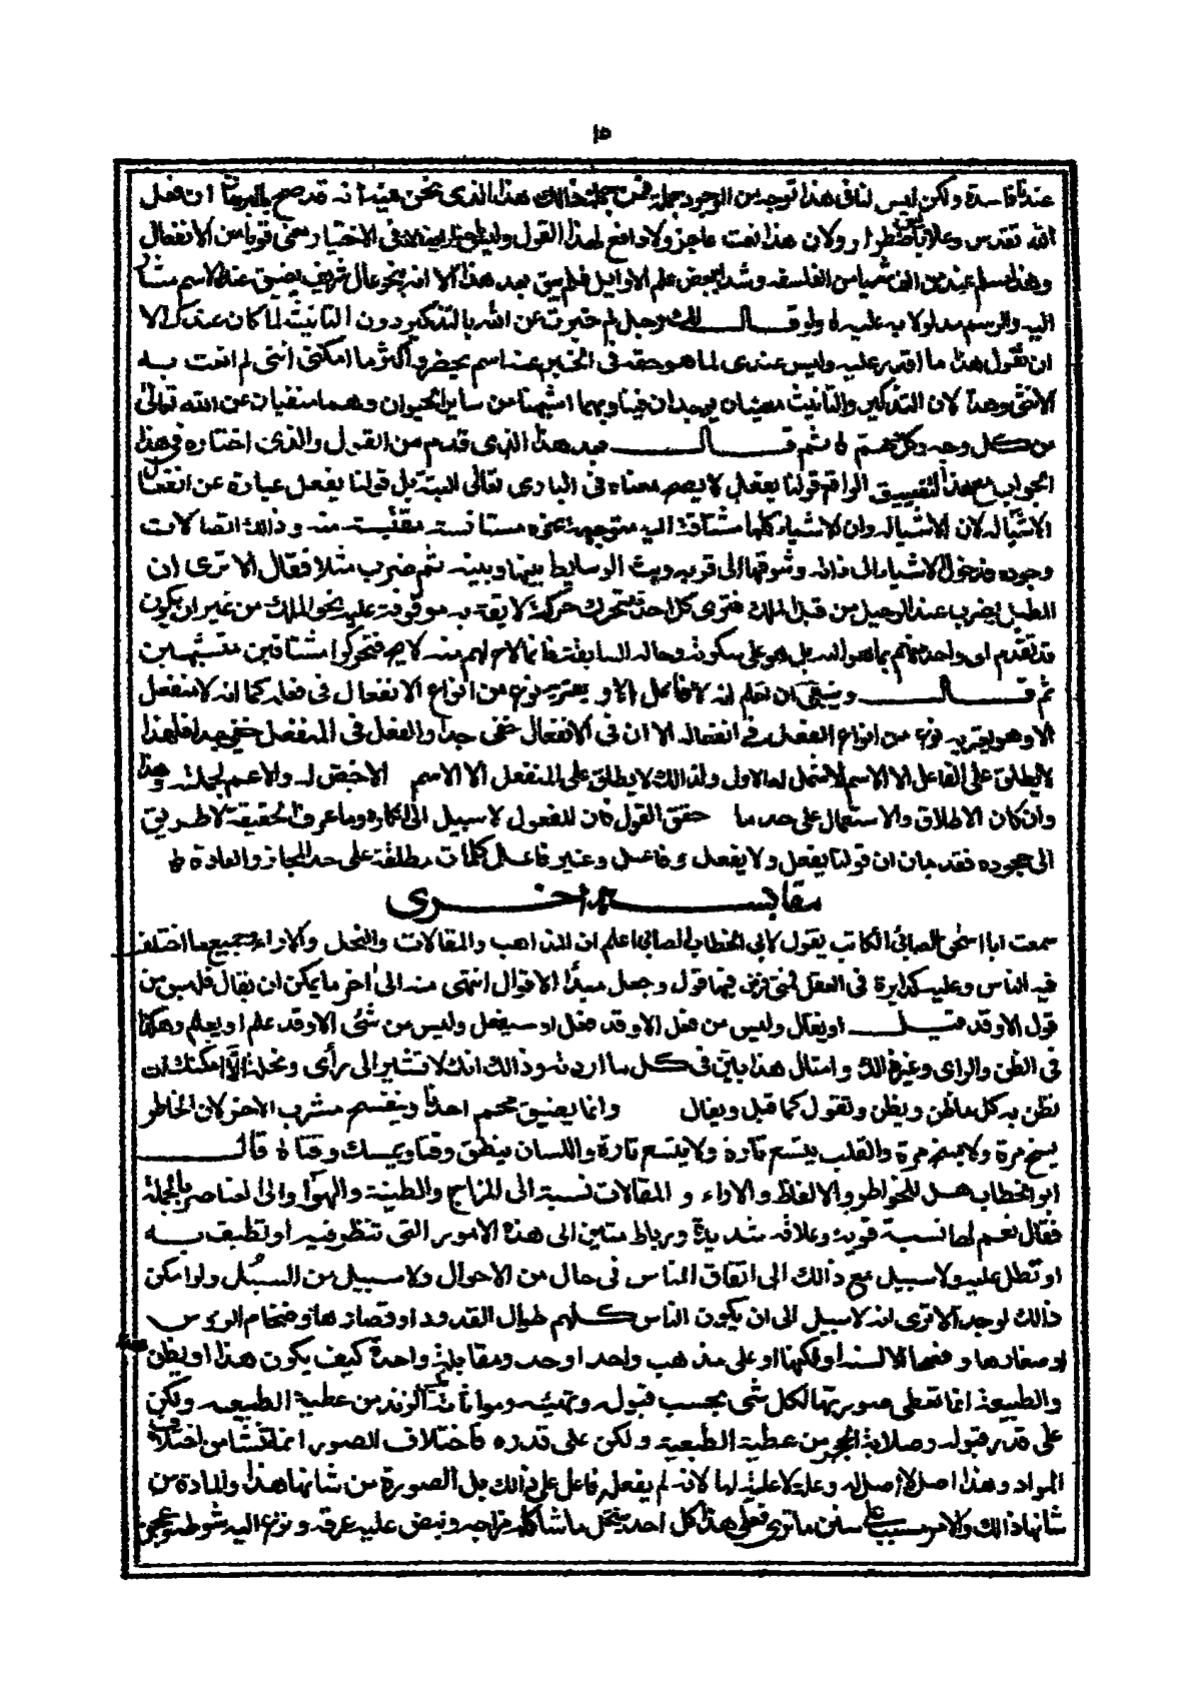 ١٥
عندنا فاسدة ولكن ليس لنا في هذا توجه من الوجوه جملة فمن جملة ذالك هذا الذى نحن فيه انه قد صح بالبرهان ان فعل
الله تقدس وعلا باضطرار ولان هذا نعت عاجز ولا دافع لهذا القول وليس باختيار لان فى الاختيار معنى قويا من الانفعال
وهذا مسلم عند من الف شيا من الفلسفه وشدا بعض علم الاوايل فلم يبق بعد هذا الا انه بنحو عال شريف يضيق عنه الاسم مشارا
اليه والرسم مدلولا به عليه له ولو قال لك رجل لم خبرت عن الله بالتذكير دون التانيث لما كان عندك الا
ان تقول هذا ما اقدر عليه وليس عندى لما هو حقه فى الخبر عنه اسم يحضر واكثر ما امكننى انى لم انعت به
الانثى وهذا لان التذكير والتانيث معنيان يوجدان فينا وبما اشبهنا من ساير الحيوان وهما منفيان عن الله تعالى
من كل وجه وكل وهم له ثم قال بعد هذا الذى قدم من القول والذى اختاره فى هذا
الجواب مع هذا التضييق الواقع قولنا يفعل لا يصح معناه فى البارى تعالى البتة بل قولنا يفعل عبارة عن انفعال
الاشيا له لان الاشيا له وان الاشياء كلها مشتاقة اليه متوجهة نحوه مستانسة مقتبسة منه وذلك اتصالات
وجوده فدخول الاشياء الى ذاته وشوقها الى قربه وبث الوسايط بينها وبينه ثم ضرب مثلا فقال الا ترى ان
الطبل يضرب عند الرحيل من قبل الملك فترى كل احد يتحرك حركة لايقة به موقوفة عليه نحو الملك من غير ان يكون
قد تقدم الى واحد منهم بما هو اليه بل هو على سكونه وحاله السابقة فانما لاح لهم منه لايح فتحركوا مشتاقين متشبهين
ثم قال وينبغى ان تعلم انه لا فاعل الا ويعتريه نوع من انواع الانفعال فى فعله كما انه لا منفعل
الا وهو يعتريه نوع من انواع الفعل فى انفعاله الا ان فى الانفعال خفى جدا والفعل فى المنفعل خفى جدا فلهذا
لا يطلق على الفاعل الا الاسم الاشمل له الاولى ولذالك لا يطلق على المنفعل الا الاسم الاخص له والاعم لجملته وهذا
وان كان الاطلاق والاستعمال على حد ما حقق القول فان للمفعول لا سبيل الى انكاره وما عرف الحقيقة لا طريق
الى جحوده فقد بان ان قولنا يفعل ولا يفعل وفاعل وغير فاعل كلمات مطلقة على حد المجاز والعادة له
مقابسة اخرى
سمعت ابا اسحق الصابئ الكاتب يقول لابى الخطاب الصابى اعلم ان المذاهب والمقالات والنحل والاراء وجميع ما اختلف
فيه الناس وعليه كدايرة فى العقل فمتى فرض فيها قول وجعل مبدأ الاقوال انتهى منه الى اخر ما يمكن ان يقال فليس من
قول الا وقد قيل او يقال وليس من فعل الا وقد فعل او سيفعل وليس من شئ الا وقد علم او يعلم وهكذا
فى الظن والراى وغير ذالك وامثال هذا بين فى كل ما اردته وذالك انك لا تشير الى رأى ونحلة الا امكنك ان
تظن به كل ما ظن ويظن وتقول كما قيل ويقال وانما يضيق محجم احدنا وينقسم مشرب الاخر لان الخاطر
يسنح مرة ولا يسنح مرة والقلب يتسع تارة ولا يتسع تارة واللسان ينطق وقتا ويمسك وقتا له قال
ابو الخطاب هل للخواطر والالفاظ والاراء و المقالات نسبة الى المزاج والطينة والهوا والى العناصر بالجملة
فقال نعم لها نسبة قوية وعلاقه شديدة ورباط متين الى هذه الامور التى تنظر فيه او تطيف به
او تطل عليه ولا سبيل مع ذالك الى اتفاق الناس فى حال من الاحوال ولا سبيل من السبل ولو امكن
ذالك لوجد الا ترى انه لا سبيل الى ان يكون الناس كلهم طوال القدود او قصارها وضخام الروس
او صغارها وفصحا الالسنة او لكنها او على مذهب واحد اوحد ومقابلة واحدة كيف يكون هذا او يظن
والطبيعة انما تعطى صورتها لكل شى بحسب قبوله وتهيئه ومواتاته الزند من عطية الطبيعه ولكن
على قدر قبوله وصلابة الحجر من عطية الطبيعية ولكن على قدره فاختلاف الصور انما نشا من اختلاف
المواد وهذا اصل لا اصل له وعلة لا علة لها لانه لم يفعله فاعل على ذالك بل الصورة من شانها هذا والمادة من
شانها ذالك والامر على سنن ما ترى فعلى هذا كل احد ينتحل ما شاكله مزاجه ونبض عليه عرقه ونزع اليه شوطه